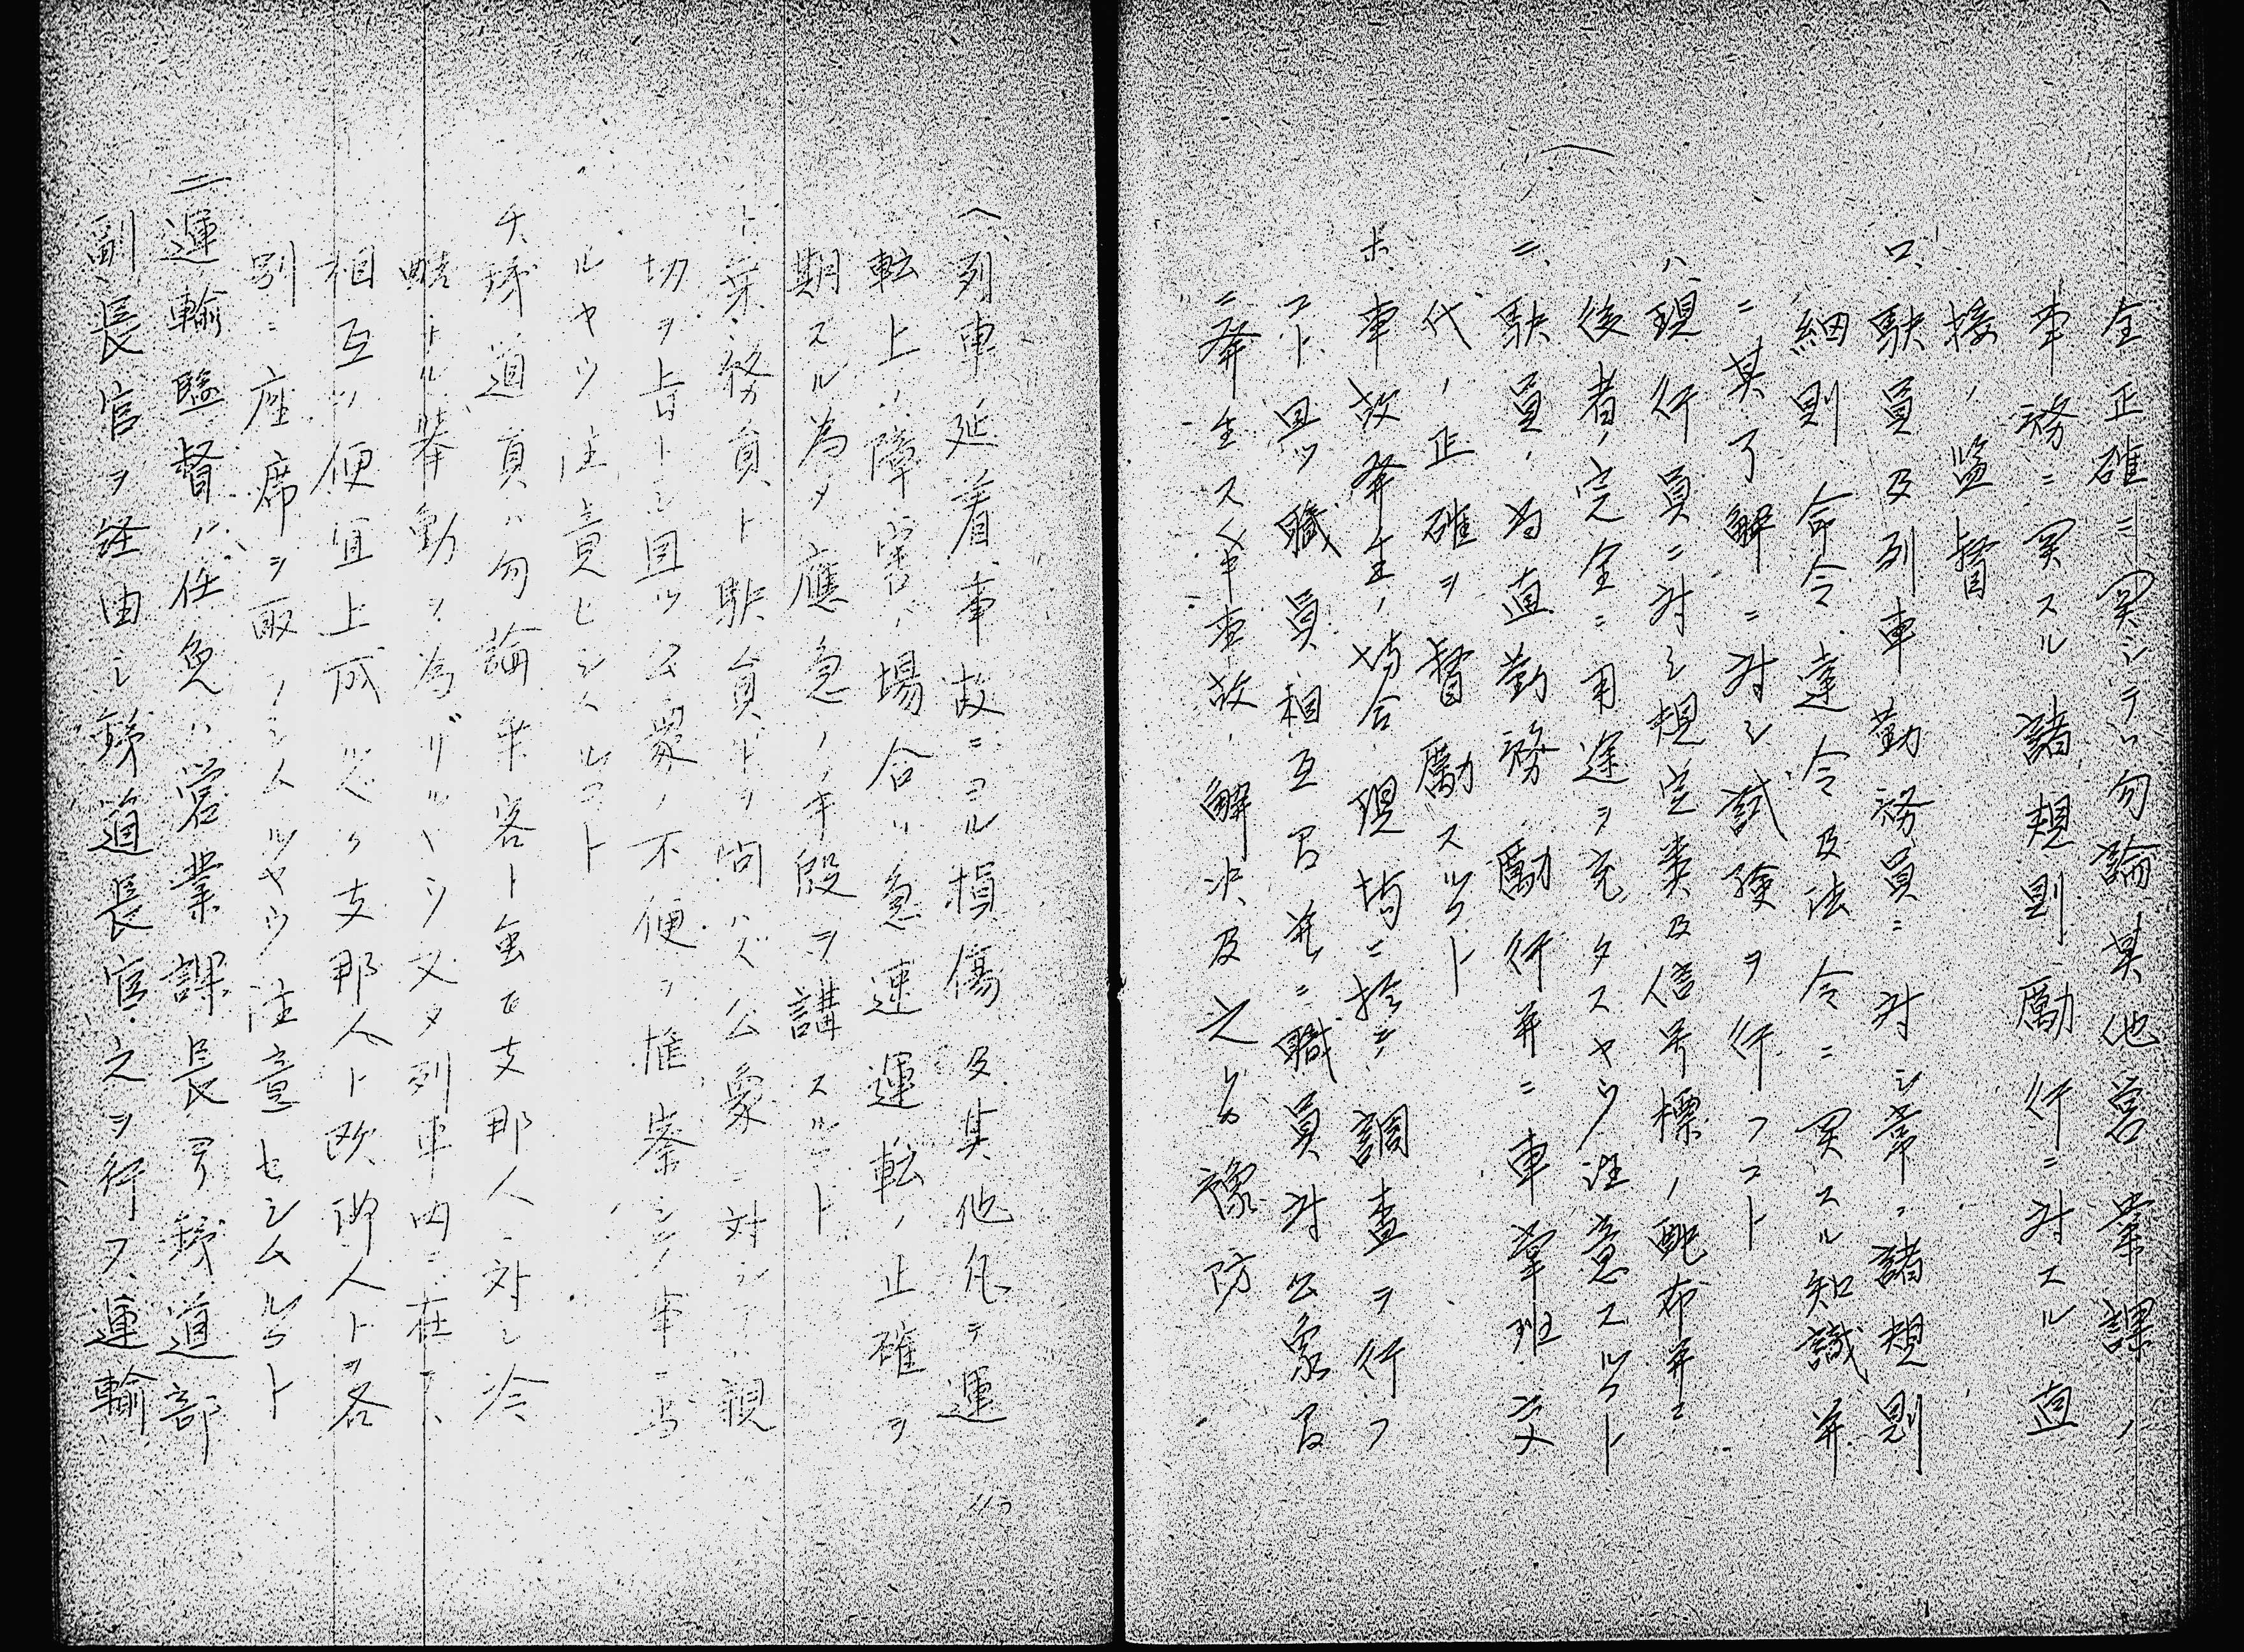 全正確ニ関シテハ勿論其他営業課ノ
事務ニ関スル諸規則励行ニ対スル直
接ノ監督
ロ、駅員及列車勤務員ニ対シ常ニ諸規則
細則命令達令及法令ニ関スル知識并
ニ其了解ニ対シ試験ヲ行フコト
ハ、現行員ニ対シ規定類及信号標ノ配布并ニ
後者ノ完全ニ用途ヲ充タスヤウ注意スルコト
ニ、駅員ノ為直勤務励行并ニ車掌班交
代ノ正確ヲ督励スルコト
ホ、事故発生ノ場合現場ニ於テ調査ヲ行フ
コト且ツ職員相互間并ニ職員対公衆間
ニ発生スル事故ノ解決及之カ豫防
ヘ、列車延着事故ニヨル損傷及其他凡テ運
転上ノ障害ノ場合ハ急速運転ノ正確ヲ
期スル為メ應急ノ手段ヲ講スルコト
ト、乗務員ト駅員トヲ問ハズ公衆ニ対シテハ親
切ヲ旨トシ且ツ公衆ノ不便ヲ惟察シ事ニ当
ルヤウ注意セシムルコト
チ、鉄道員ハ勿論乗客ト雖モ支那人ニ対シ冷
酷ナル挙動ヲ為ザルハシ又タ列車内ニ在テハ
相互ノ便宜上成ルベク支那人ト欧洲人トヲ各
別ニ座席ヲ取ラシムルヤウ注意セシムルコト
二、運輸監督ノ任免ハ営業課長ヨリ鉄道部
副長官ヲ経由シ鉄道長官之ヲ行フ運輸